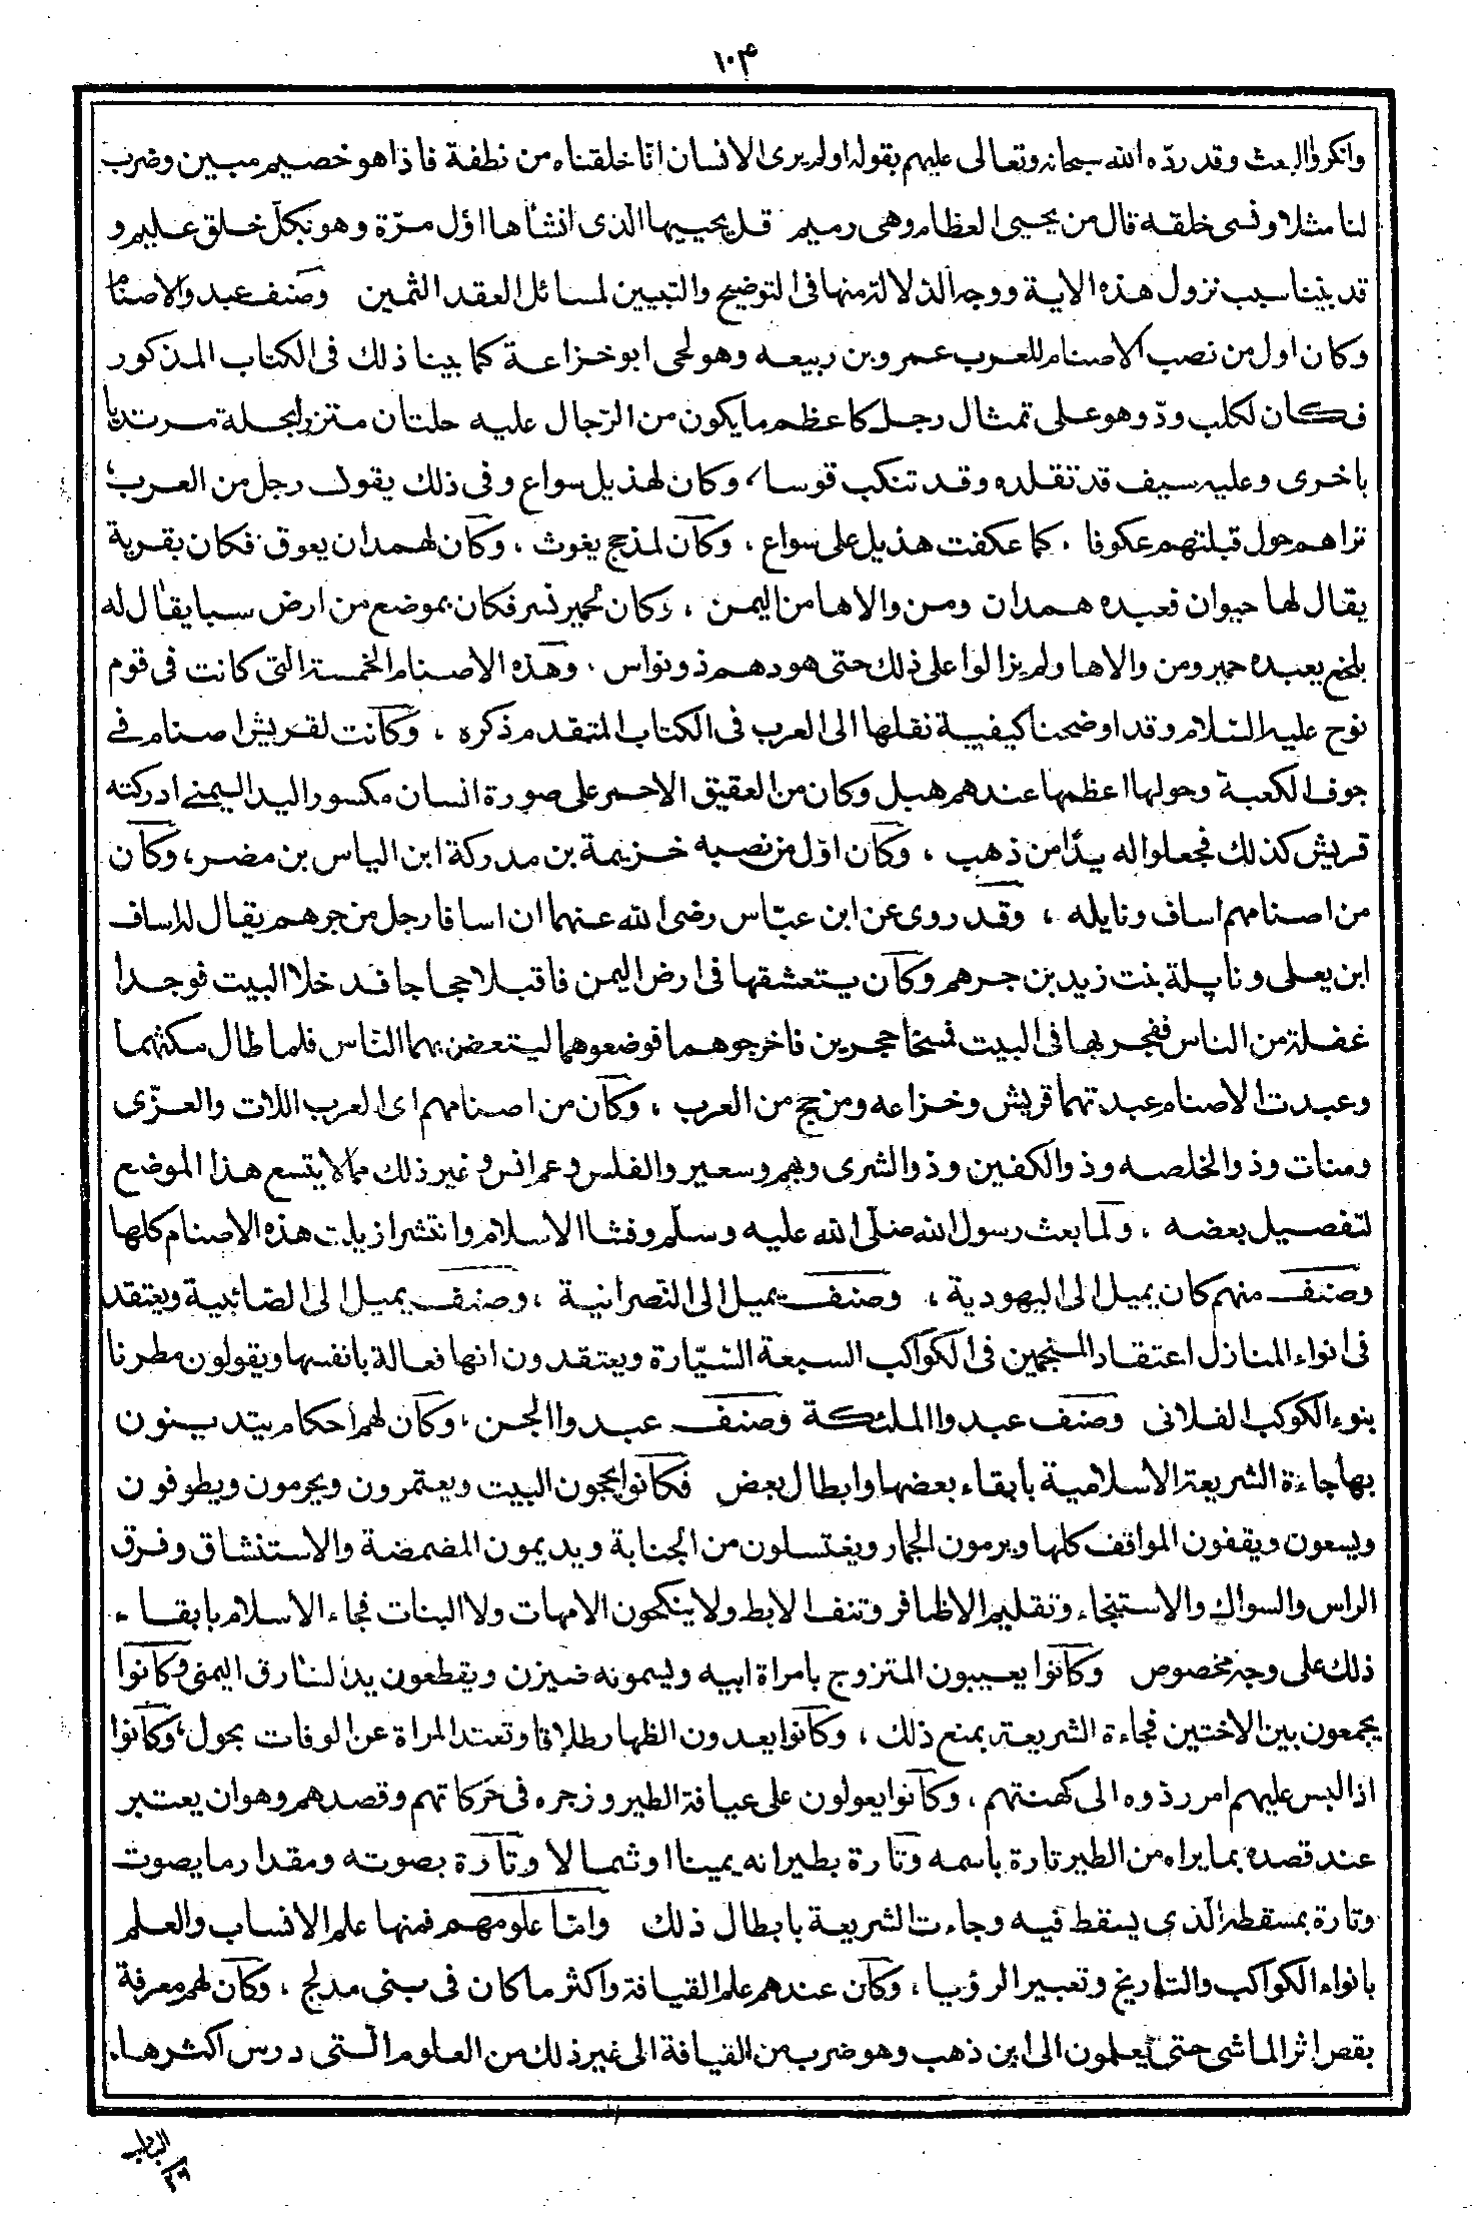 ١٠٣
وانكروا البعث وقد ردّه الله سبحانه وتعالى عليهم بقوله اولم يرى الانسان انّا خلقناه من نطفة فاذا هو خصيم مبين وضرب
لنا مثلا ونسى خلقه قال من يحيى العظام وهى رميم قل يحييها الّذى انشأها اوّل مرّة وهو بكلّ خلق عليم و
قد بيّنا سبب نزول هذه الاية ووجه الدّلالة منها فى التوضيح والتبيين لمسائل العقد الثمين وصنف عبدوا الاصنام
وكان اول من نصب الاصنام للعرب عمرو بن ربيعه وهو لحى ابو خزاعة كما بينا ذلك فى الكتاب المذكور
فكان لكلب ودّ وهو على تمثال رجل كاعظم ما يكون من الرّجال عليه حلتان متزر بحلة مرتديا
باخرى وعليه سيف قد تقلده وقد تنكب قوسا، وكان لهذيل سواع وفى ذلك يقول رجل من العرب؛
تراهم حول قبلتهم عكوفا ، كما عكفت هذيل على سواع ، وكان لمذحج يغوث ، وكان لهمدان يعوق فكان بقرية
يقال لها حيوان فعبده همدان ومن والاها من اليمن ، وكان لحمير نسر فكان بموضع من ارض سبا يقال له
بلخع يعبده حمير ومن والاها ولم يزالوا على ذلك حتى هودهم ذو نواس ، وهذه الاصنام الخمسة التى كانت فى قوم
نوح عليه السّلام وقد اوضحنا كيفية نقلها الى العرب فى الكتاب المتقدم ذكره ، وكانت لقريش اصنام فى
جوف الكعبة وحولها اعظمها عندهم هبل وكان من العقيق الاحمر على صورة انسان مكسور اليد اليمنى ادركته
قريش كذلك فجعلوا له يدًا من ذهب ، وكان اوّل من نصبه خزيمة بن مدركة ابن الياس بن مضر، وكان
من اصنامهم اساف ونايله ، وقد روى عن ابن عبّاس رضى الله عنهما ان اسافا رجل من جرهم يقال له اساف
ابن يعلى ونايلة بنت زيد بن جرهم وكان يتعشقها فى ارض اليمن فاقبلا حجاجا فدخلا البيت فوجدا
غفلة من الناس ففجر بها فى البيت فمسخا حجرين فاخرجوهما فوضعوهما ليتعض بهما النّاس فلما طال مكثهما
وعبدت الاصنام عبدتهما قريش وخزاعه ومن حج من العرب ، وكان من اصنامهم اى العرب اللات والعزّى
ومنات وذو الخلصه وذو الكفين وذو الشرى ونهم وسعير والفلس وعمرانس وغير ذلك مما لا يتسع هذا الموضع
لتفصيل بعضه ، ولما بعث رسول الله صلّى الله عليه وسلّم وفشا الاسلام وانتشر ازيلت هذه الاصنام كلها
وصنف منهم كان يميل الى اليهودية ، وصنف يميل الى النصرانية ، وصنف يميل الى الصّائبية ويعتقد
فى انواء المنازل اعتقاد المنجمين فى الكواكب السبعة السّيّارة ويعتقدون انها فعالة بانفسها ويقولون مطرنا
بنوء الكوكب الفلانى وصنف عبدوا الملئكة وصنف عبدوا الجن ، وكان لهم احكام يتدينون
بها جاءة الشريعة الاسلامية بابقاء بعضها وابطال بعض فكانوا يحجون البيت ويعتمرون ويحرمون ويطوفون
ويسعون ويقفون المواقف كلها ويرمون الجمار ويغتسلون من الجنابة ويديمون المضمضة والاستنشاق وفرق
الراس والسواك والاستنجاء وتقليم الاظافر وتنف الابط ولا ينكحون الامهات ولا البنات فجاء الاسلام بابقاء
ذلك على وجه مخصوص وكانوا يعيبون المتزوج بامراة ابيه ويسمونه ضيزن ويقطعون يد السّارق اليمنى وكانوا
يجمعون بين الاختين فجاءة الشريعة بمنع ذلك ، وكانوا يعدون الظهار طلاقا وتعتد المراة عن الوفات بحول، وكانوا
اذا البس عليهم امر ردّوه الى كهنتهم ، وكانوا يعولون على عيافة الطير وزجره فى حركاتهم وقصدهم وهو ان يعتبر
عند قصده بما يراه من الطير تارة باسمه وتارة بطيرانه يمينا او شمالا وتارة بصوته ومقدار ما يصوت
وتارة بمسقطه الّذى يسقط فيه وجاءت الشريعة بابطال ذلك وامّا علومهم فمنها علم الانساب والعلم
بانواء الكواكب والتاريخ وتعبير الرؤيا ، وكان عندهم علم القيافة واكثر ما كان فى بنى مدلج ، وكان لهم معرفة
بقص اثر الماشى حتى يعلمون الى اين ذهب وهو ضرب من القيافة الى غير ذلك من العلوم الّتى درس اكثرها.
الباب
٢٦